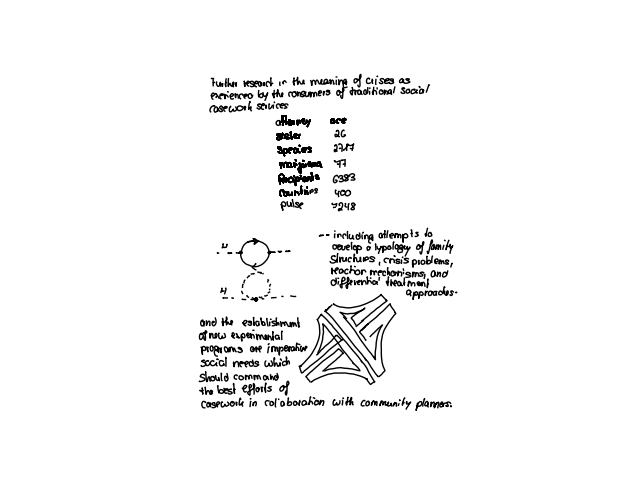 Further research in the meaning of crises as
experienced by the consumers of traditional social
casework services
attorney are
stoler 26
species 2717
marijuana 77
Recipients 6383
countries 400
pulse 7248
-- including attempts to
develop a typology of family
structures, crisis problems,
reaction mechanisms, and
differential treatment
approaches-
H
H
and the establishment
of new experimental
programs are imperative
social needs which
should command
the best efforts of
casework in collaboration with community planners.